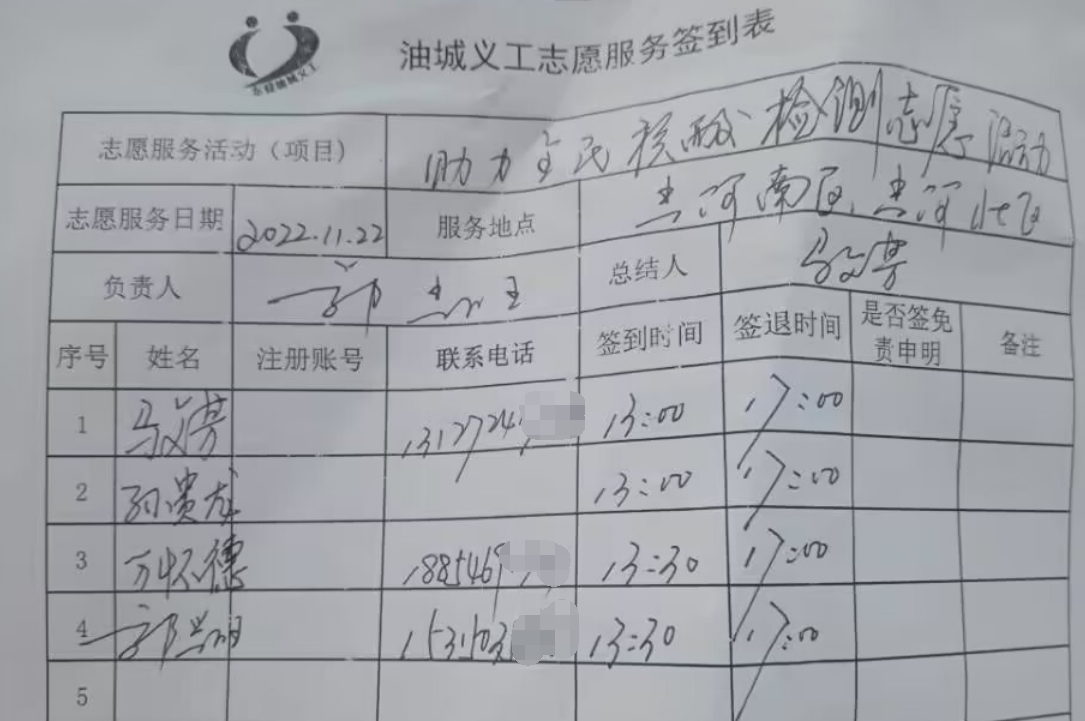 油城义工志愿服务签到表
志愿服务活动（项目） 助力全民核酸检测志愿活动
志愿服务日期 2022.11.22 服务地点
负责人 总结人
序号 姓名 注册账号 联系电话 签到时间 签退时间 是否签免责申明 备注
1 1312724 13:00 17:00
2 孙贵龙 13:00 17:00
3 万怀德 1885469 13:30 17:00
4 153103 13:30 17:00
5